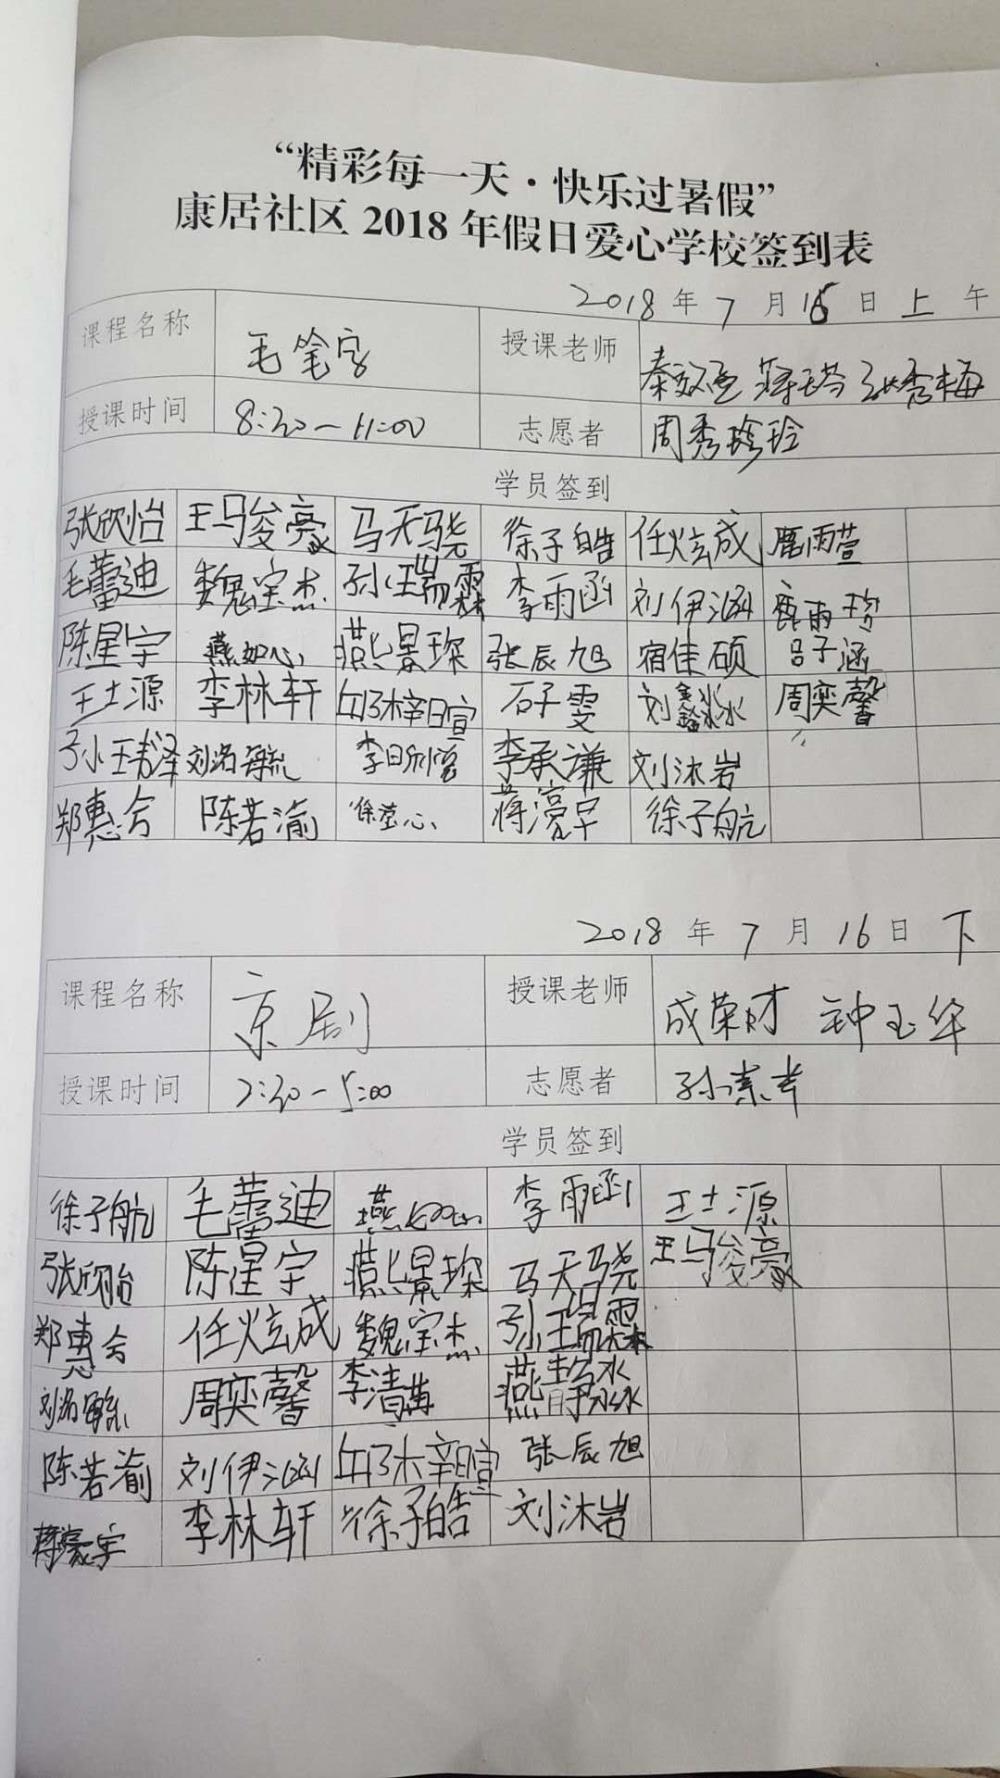 “精彩每一天·快乐过暑假”
康居社区 2018 年假日爱心学校签到表
2018 年 7 月 16 日 上 午
课程名称 毛笔字 授课老师 张秀梅
授课时间 8:30-11:00 志愿者 周秀珍
学员签到
张欣怡 王马俊豪 马天骁 徐子皓 任炫成 鹿雨萱
毛蕾迪 魏宝杰 李雨函 刘伊涵
陈星宇 燕如心 燕景琛 张辰旭 宿佳硕 吕子涵
王士源 李林轩 石子雯 刘鑫淼 周奕馨
李承谦 刘沐岩
郑惠 陈若渝 徐子航
2018 年 7 月 16 日 下
课程名称 京剧 授课老师 成荣财 钟玉华
授课时间 2:30-5:00 志愿者
学员签到
徐子航 毛蕾迪 燕如心 李雨函 王士源
张欣怡 陈星宇 燕景琛 马天骁 王马俊豪
郑惠 任炫成 魏宝杰
周奕馨 燕静淼
陈若渝 刘伊涵 张辰旭
李林轩 徐子皓 刘沐岩